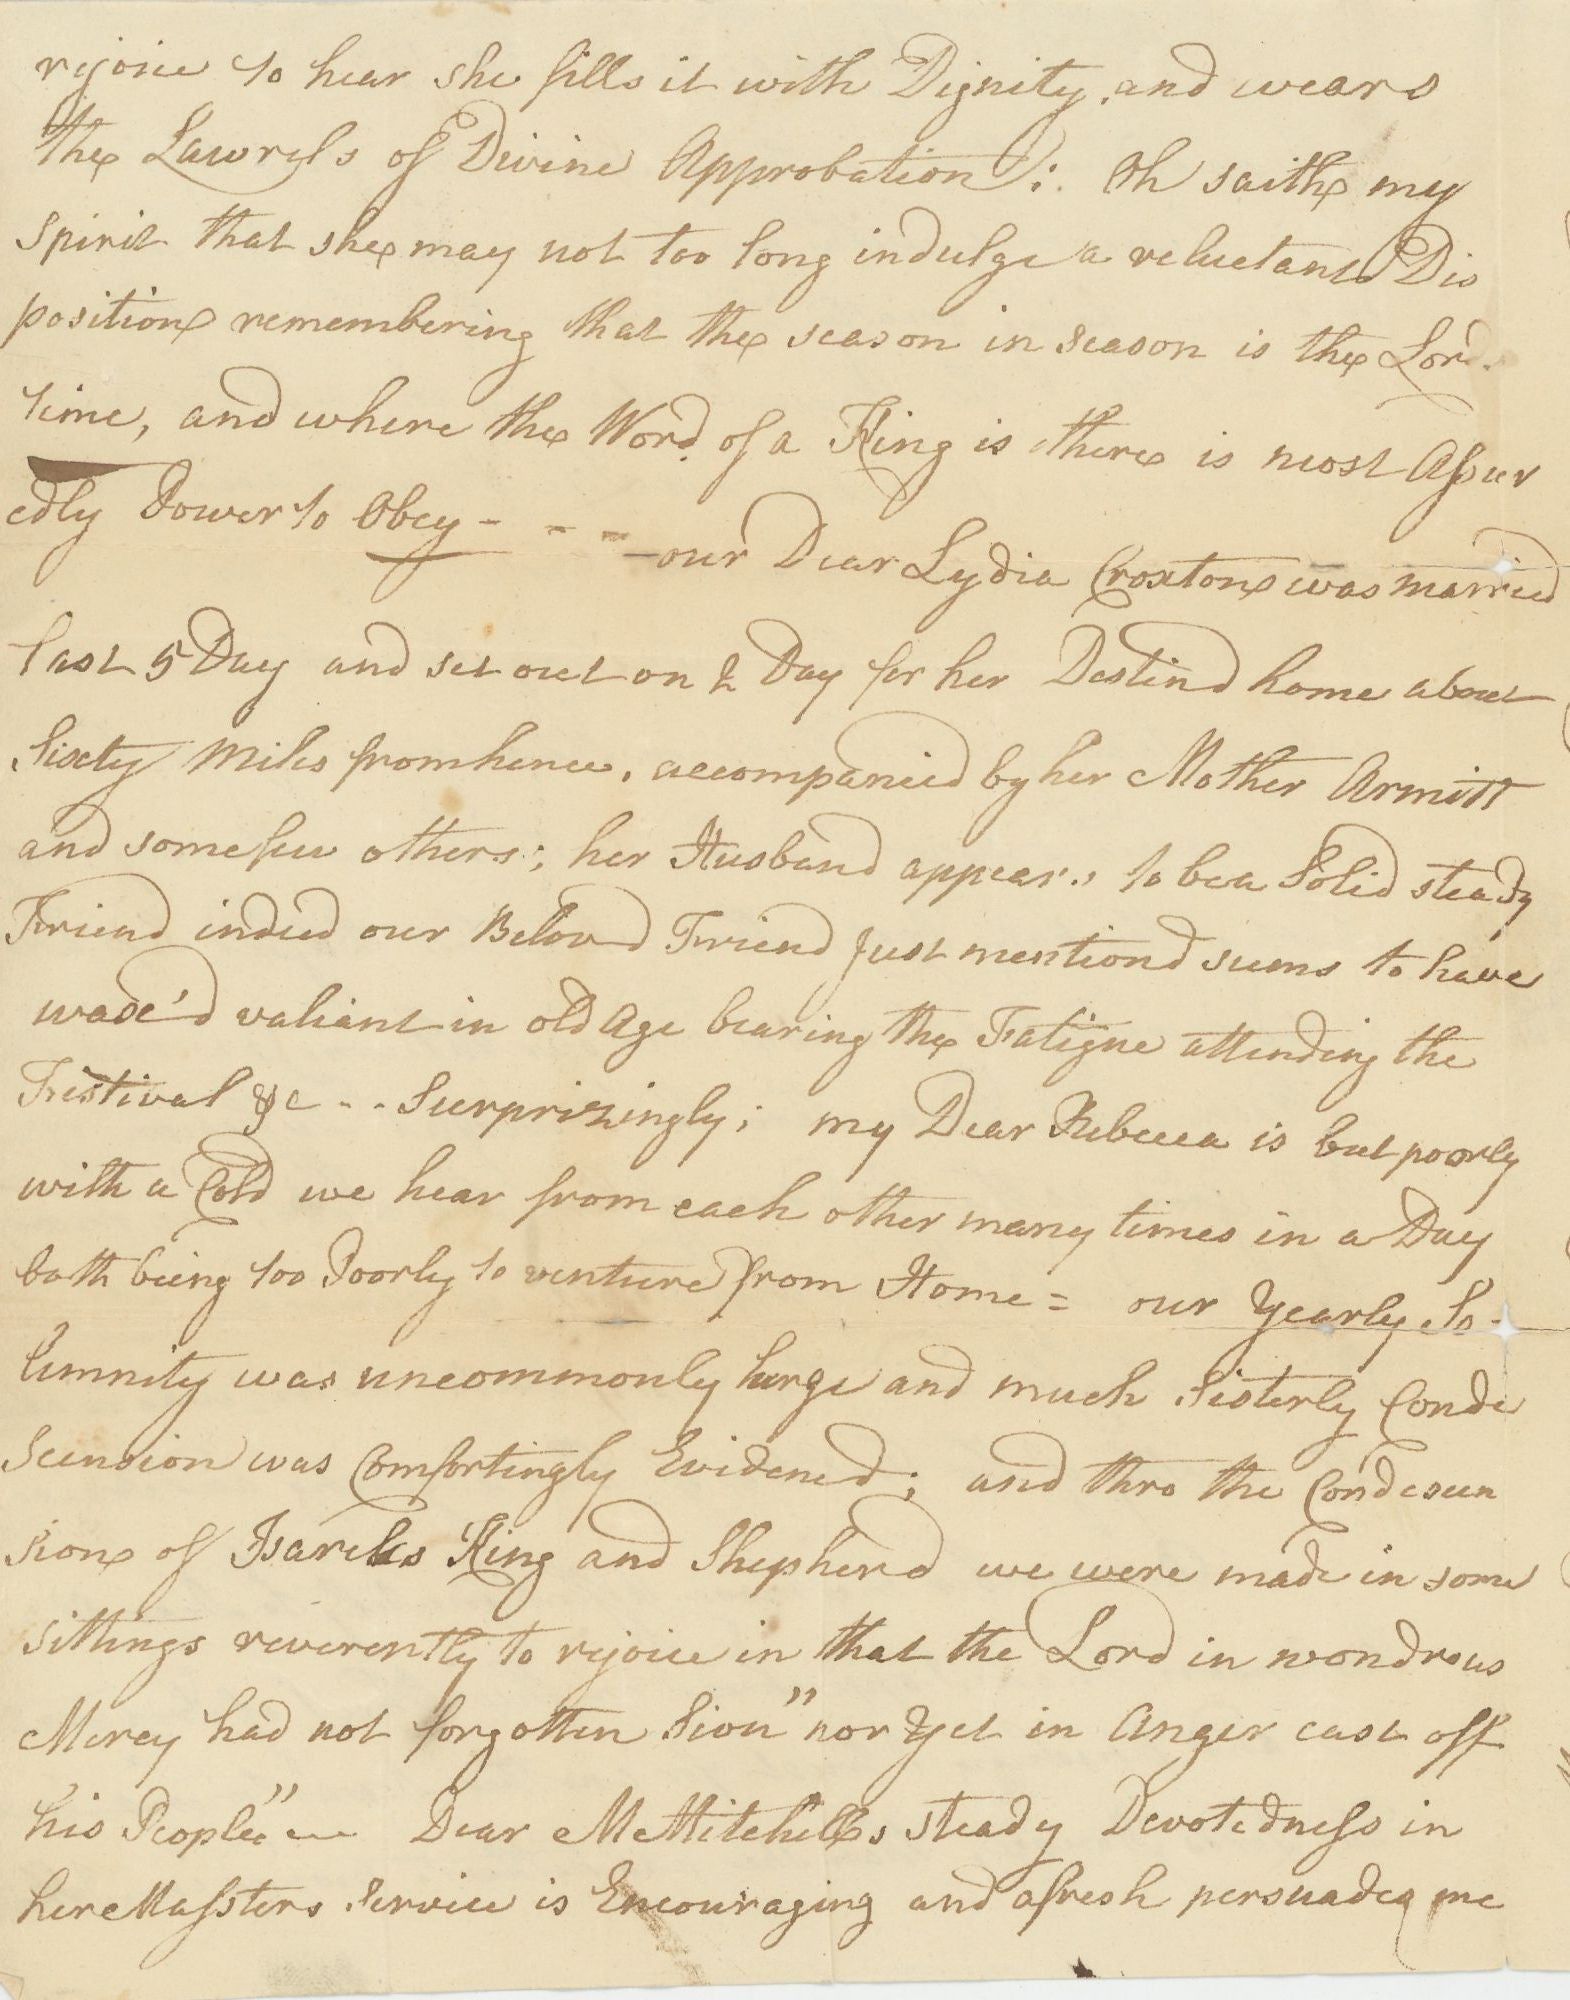 rejoice to hear she fills it with Dignity, and wears
the Lawrels of Divine Approbation; Oh saith my
Spirit that she may not too long indulge a reluctant Dis
position remembering that the season in season is the Lords
time, and where the Word of a King is there is most Assur
edly Power to Obey - - - - our Dear Lydia Croxton was married
last 5 Day and set out on 2 Day for her Destind home about
Sixty Miles from hence, accompanied by her Mother Armitt
and some few others; her Husband appears to be a Solid steady
Friend indeed our Belovd Friend just mentiond seems to have
wade'd valiant in old Age bearing the Fatigue attending the
Festival &c - - Surprizingly; my Dear Rebecca is but poorly
with a Cold we hear from each other many times in a Day
both being too Poorly to venture from Home = our Yearly So-
lemnity was uncommonly large and much Sisterly Conde
Scension was Comfortingly Evidenced; and thro the Condescen
sion of Isarels King and Shepherd we were made in some
sittings reverently to rejoice in that the Lord in wondrous
Mercy had not forgotten Sion" nor Yet in Anger cast off
his People" — Dear M Mitchells steady Devotedness in
her Massters Service is Encouraging and afresh persuades me